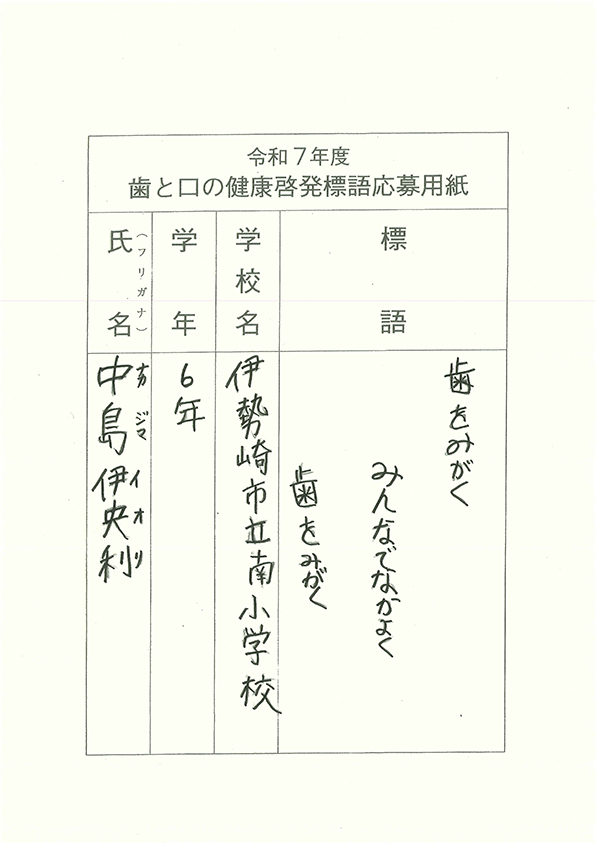 令和7年度
歯と口の健康啓発標語応募用紙
標語
歯をみがく
みんなでなかよく
歯をみがく
学校名
伊勢崎市立南小学校
学年
6年
氏名
（フリガナ）
中島伊央利
ナカジマイオリ